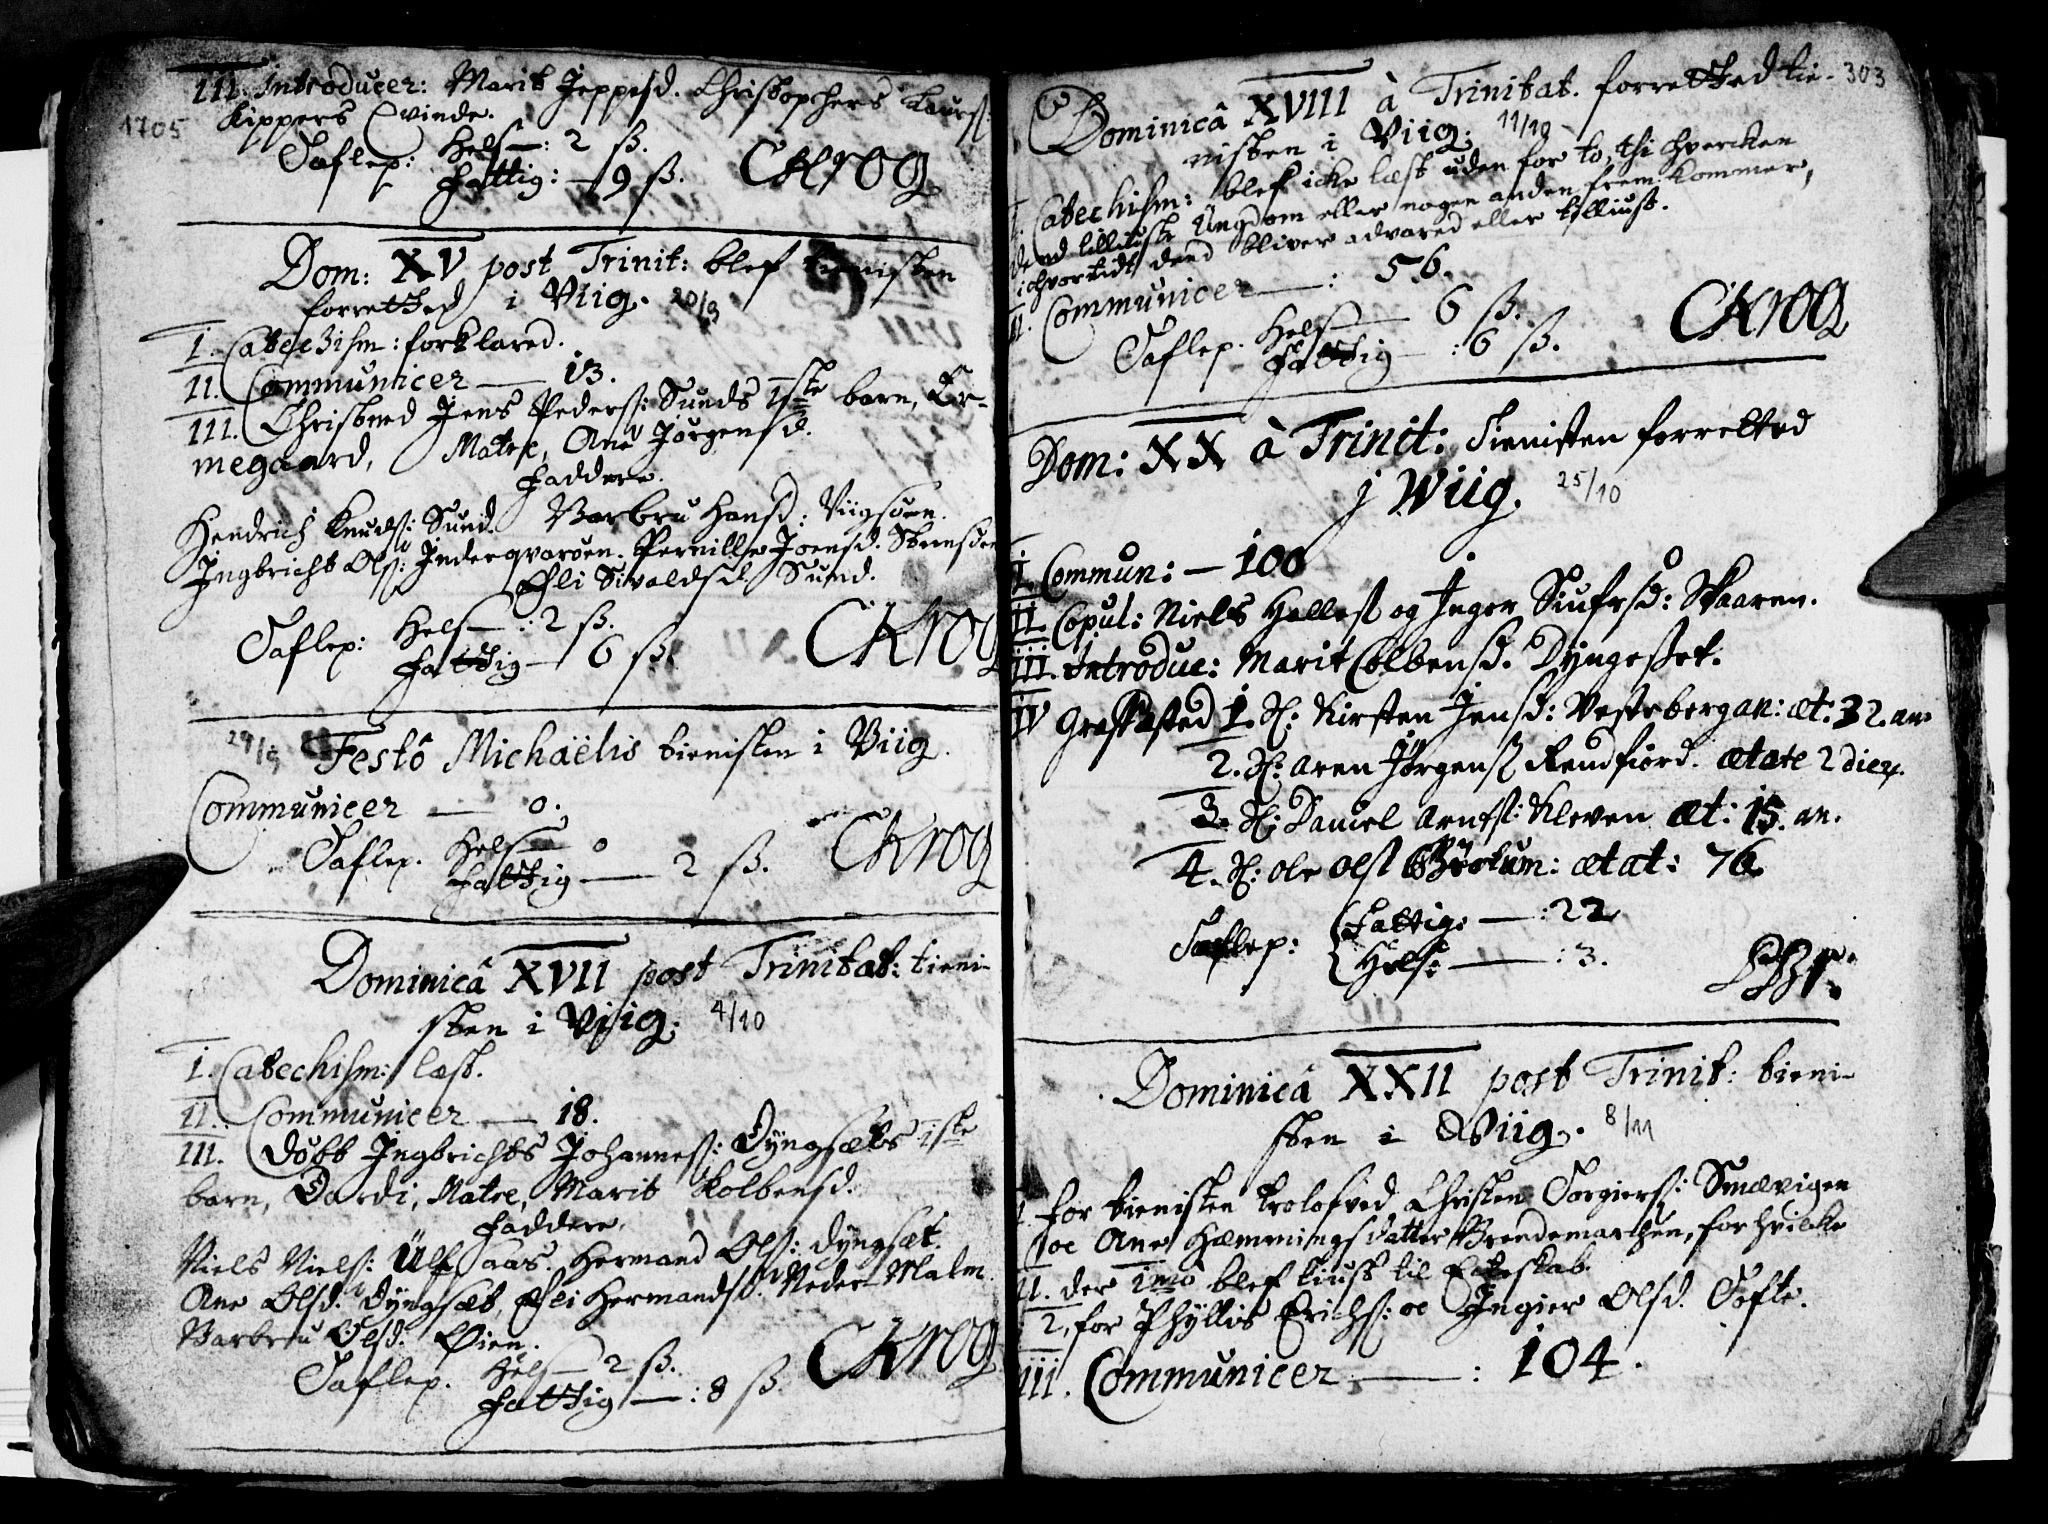 1705
III. Introducer: Marit Jeppesd. Christopchers Laurs:
Kippers Qvinde.
Taflep: Hels—: 2 ß.
Fattig: — 9 ß. CKrog
Dom: XV post Trinit: blef tienisten
forretted i Viig. 20/9
I. Catechism: forklared.
II. Communicer — 13.
III. Christned Jens Peders: Sunds 1ste barn, Er-
megaard, Matre, Ane Jørgensd.
Faddere.
Hendrich Knuds: Sund. Barbru Hansd: Viigsøen.
Ingbricht Ols: Inderqvarøen. Pernille Joensd.
Eli Sivaldsd. Sund.
Taflep: Hels—: 2 ß.
Fattig — 6 ß. CKrog
29/9 Festô Michaëlis tienisten i Viig.
Communicer — 0.
Taflep. Hels— 0
Fattig — 2 ß. CKrog
Dominicâ XVII post Trinitat: tieni-
sten i Viig: 4/10
I. Catechism: læst.
II. Communicer — 18.
III. Døbt Ingbrichts Johannes: Dyngsæts 1ste
barn, Dardi, Matre, Marit Kolbensd.
Faddere.
Niels Niels: Ulfsaas. Hermand Ols: Dyngsæt.
Ane Olsd. Dyngsæt, Eli Hermandsd. Neder Malm.
Barbru Olsd: Øien.
Taflep. Hels— 2 ß.
Fattig — : 8 ß. CKrog
303
Dominicâ XVIII à Trinitat. forretted tie-
nisten i Viig: 11/10
I. Catechism: blef icke læst uden for to, thi hvercken
dend Ungdom eller nogen anden frem kommer,
ihvortidt dend bliver advared eller tilliust.
II. Communicer — : 56.
Taflep. Hels— 6 ß.
Fattig — : 6 ß. CKrog
Dom: XX à Trinit: Tienisten forretted
j Wiig. 25/10
I. Commun: — 100
II. Copul: Niels Halles: og Inger Siufrsd: Skaaren.
III. Introduc: Marit Colbensd. Dyngeset.
IV Graffasted 1. S: Kirsten Jensd: Vestebergan: æt: 32. an.
2. S: Aren Jørgens: Rendfiord. ætate 2 dier.
3. S: Daniel Arnts: Kleven æt: 15. an.
4. S: Ole Ols: ætat: 76.
Taflep: Fattig: — : 22
Hels: — : 3.
Dominicâ XXII post Trinit: tieni-
sten i Viig. 8/11
I for tienisten trolofved Christen Torgiers: Smævigen
oc Ane Hæmmingsdatter Brendemarchen, for hvilke
II. der 1mo blef liust til Ecteskab.
2, for Phyllis Erichs: oc Ingier Olsd. Tofte.
III. Communicer — : 104.